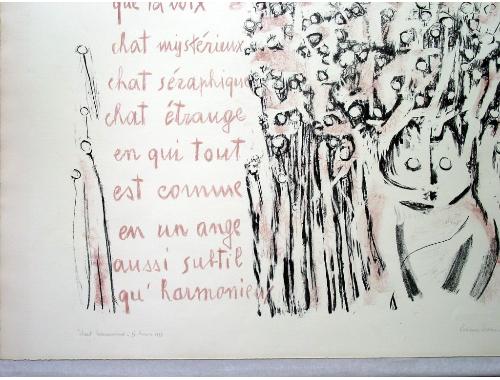 que ta voix
chat mystérieux
chat séraphique
chat étrange
en qui tout
est comme
en un ange
aussi subtil
qu'harmonieux